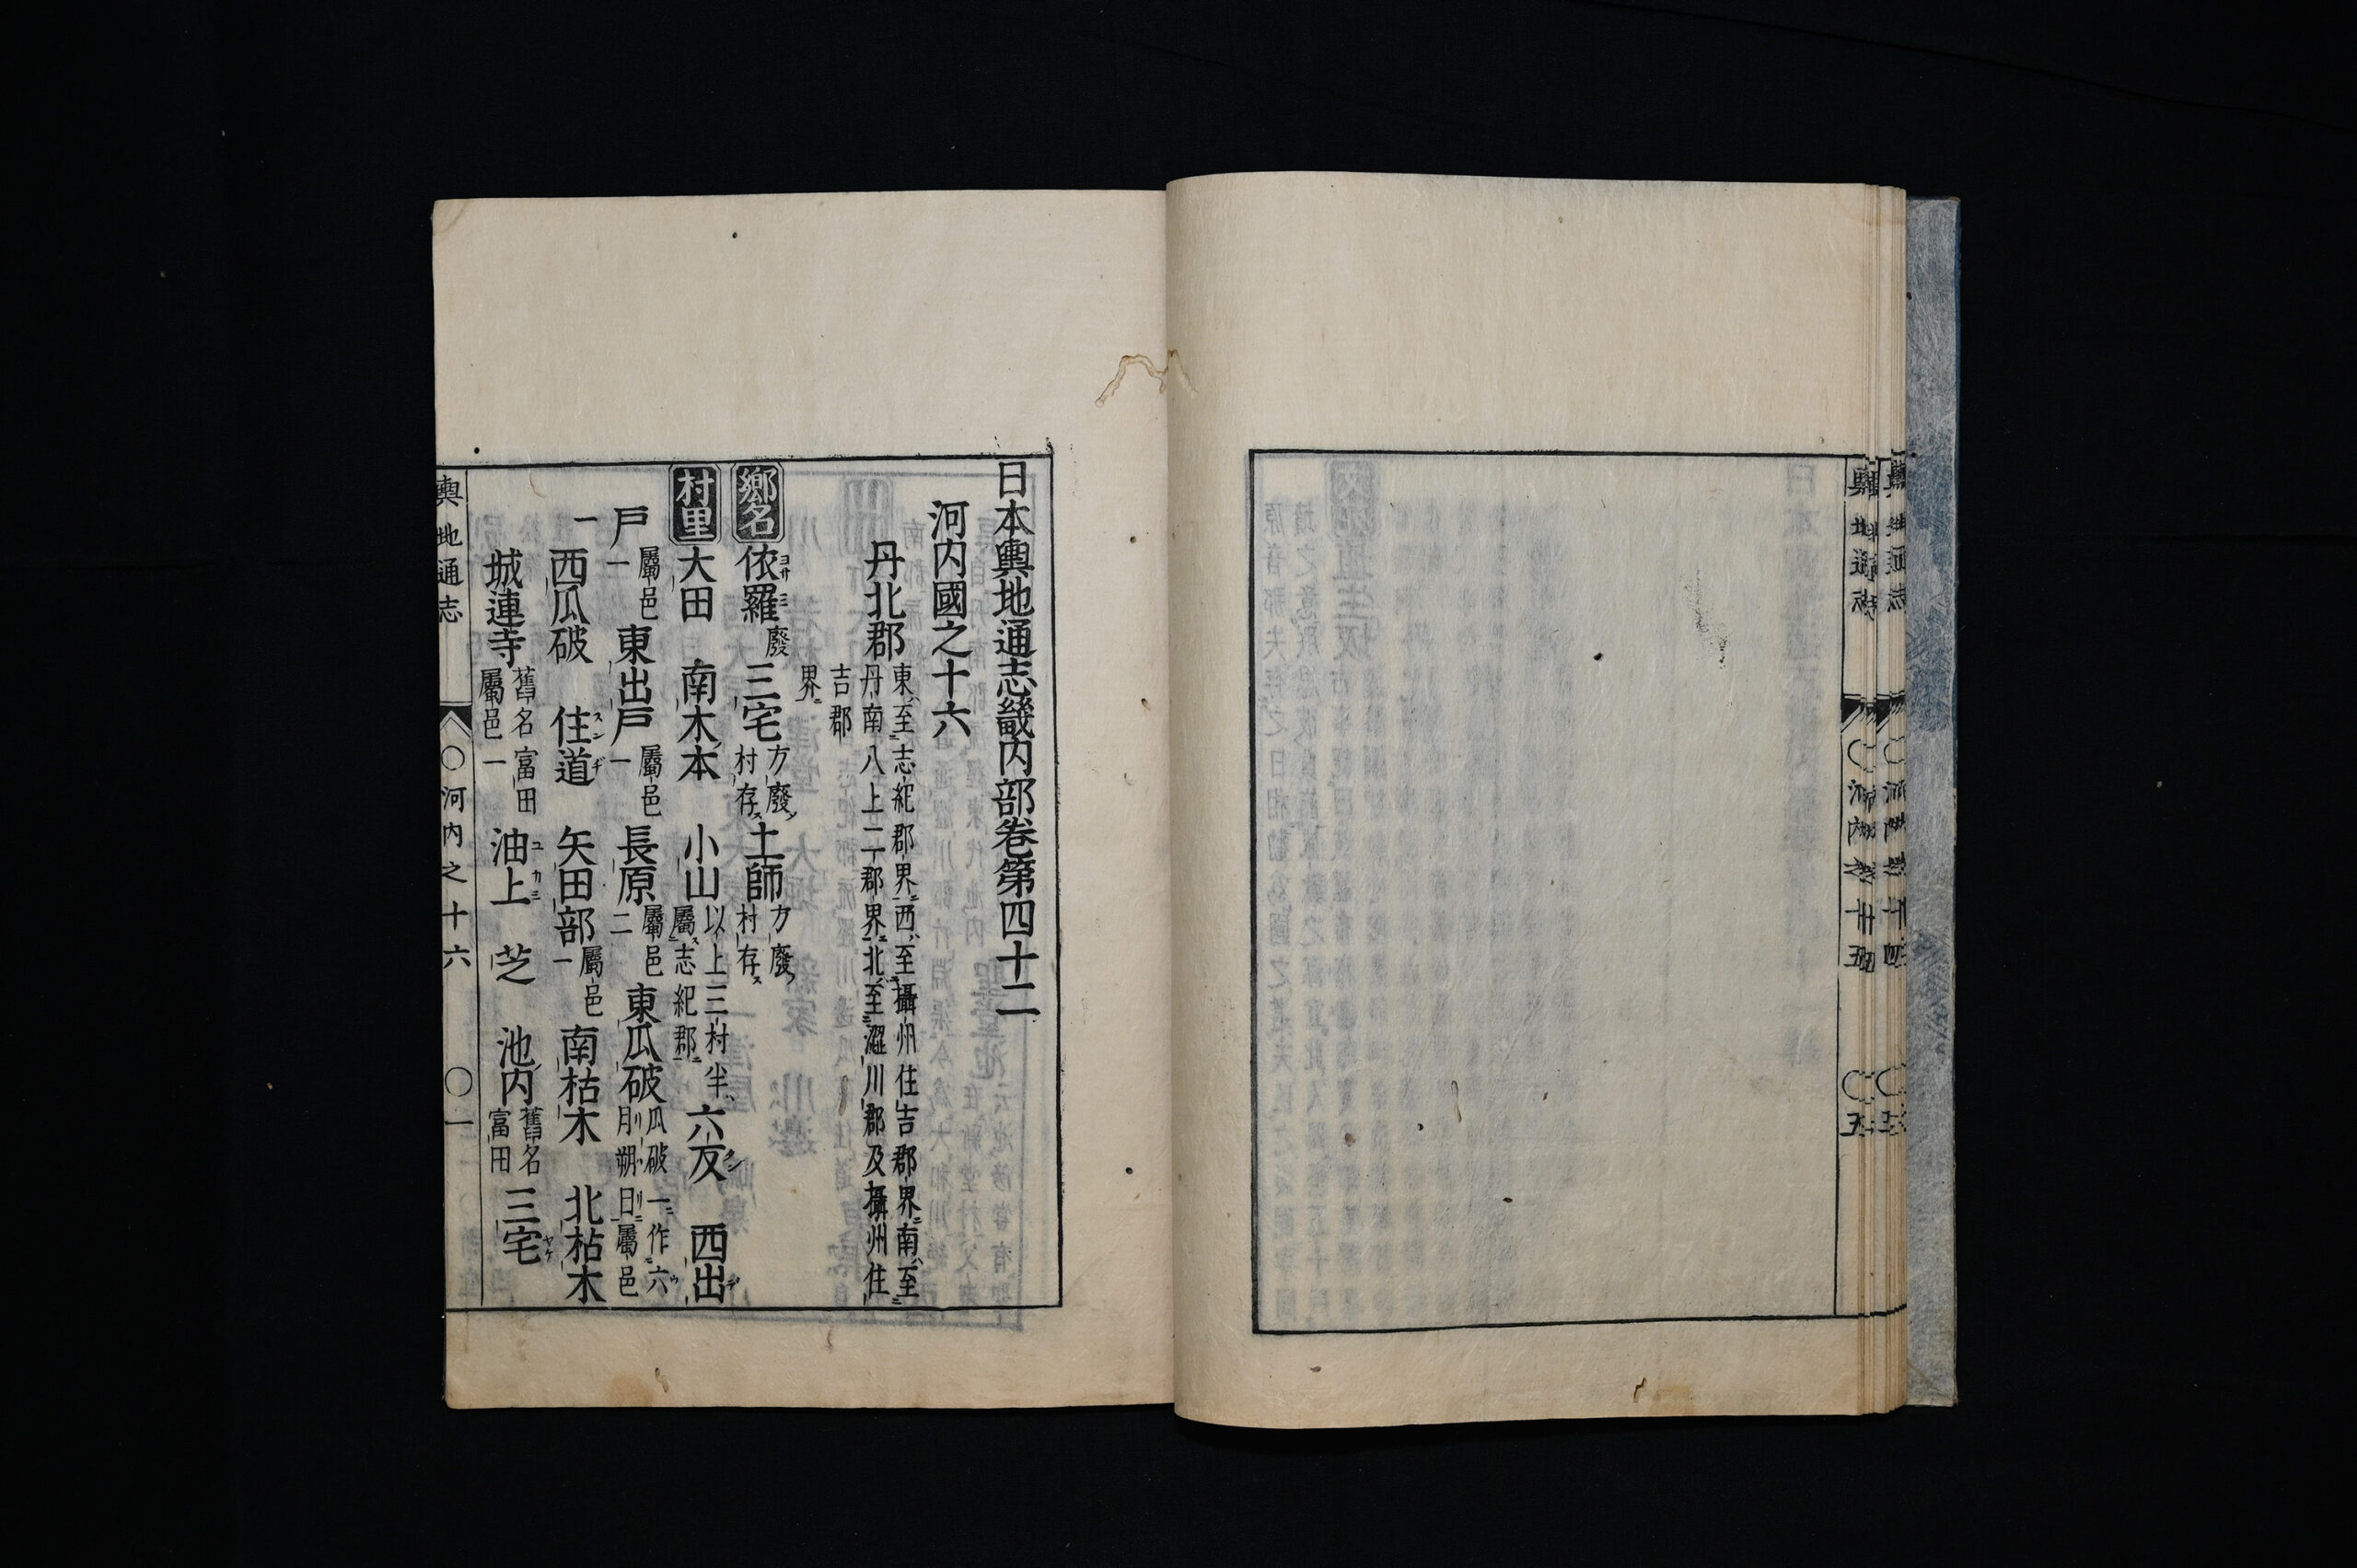 日本輿地通志畿内部卷第四十二
河内國之十六
丹北郡 東至志紀郡界西至攝州住吉郡界南至
丹南八上二郡界北至澀川郡及攝州住
吉郡
界
鄕名 依羅 廢 三宅 方廢村存 土師 方廢村存
村里 大田 南木本 小山 以上三村半屬志紀郡 六反 西出
戸 屬邑一 東出戸 屬邑一 長原 屬邑二 東瓜破 瓜破一作六月朔日屬邑
一 西瓜破 住道 矢田部 屬邑一 南枯木 北枯木
城連寺 舊名富田屬邑一 油上 芝 池内 舊名富田 三宅
輿地通志 ○河内之十六 ○一